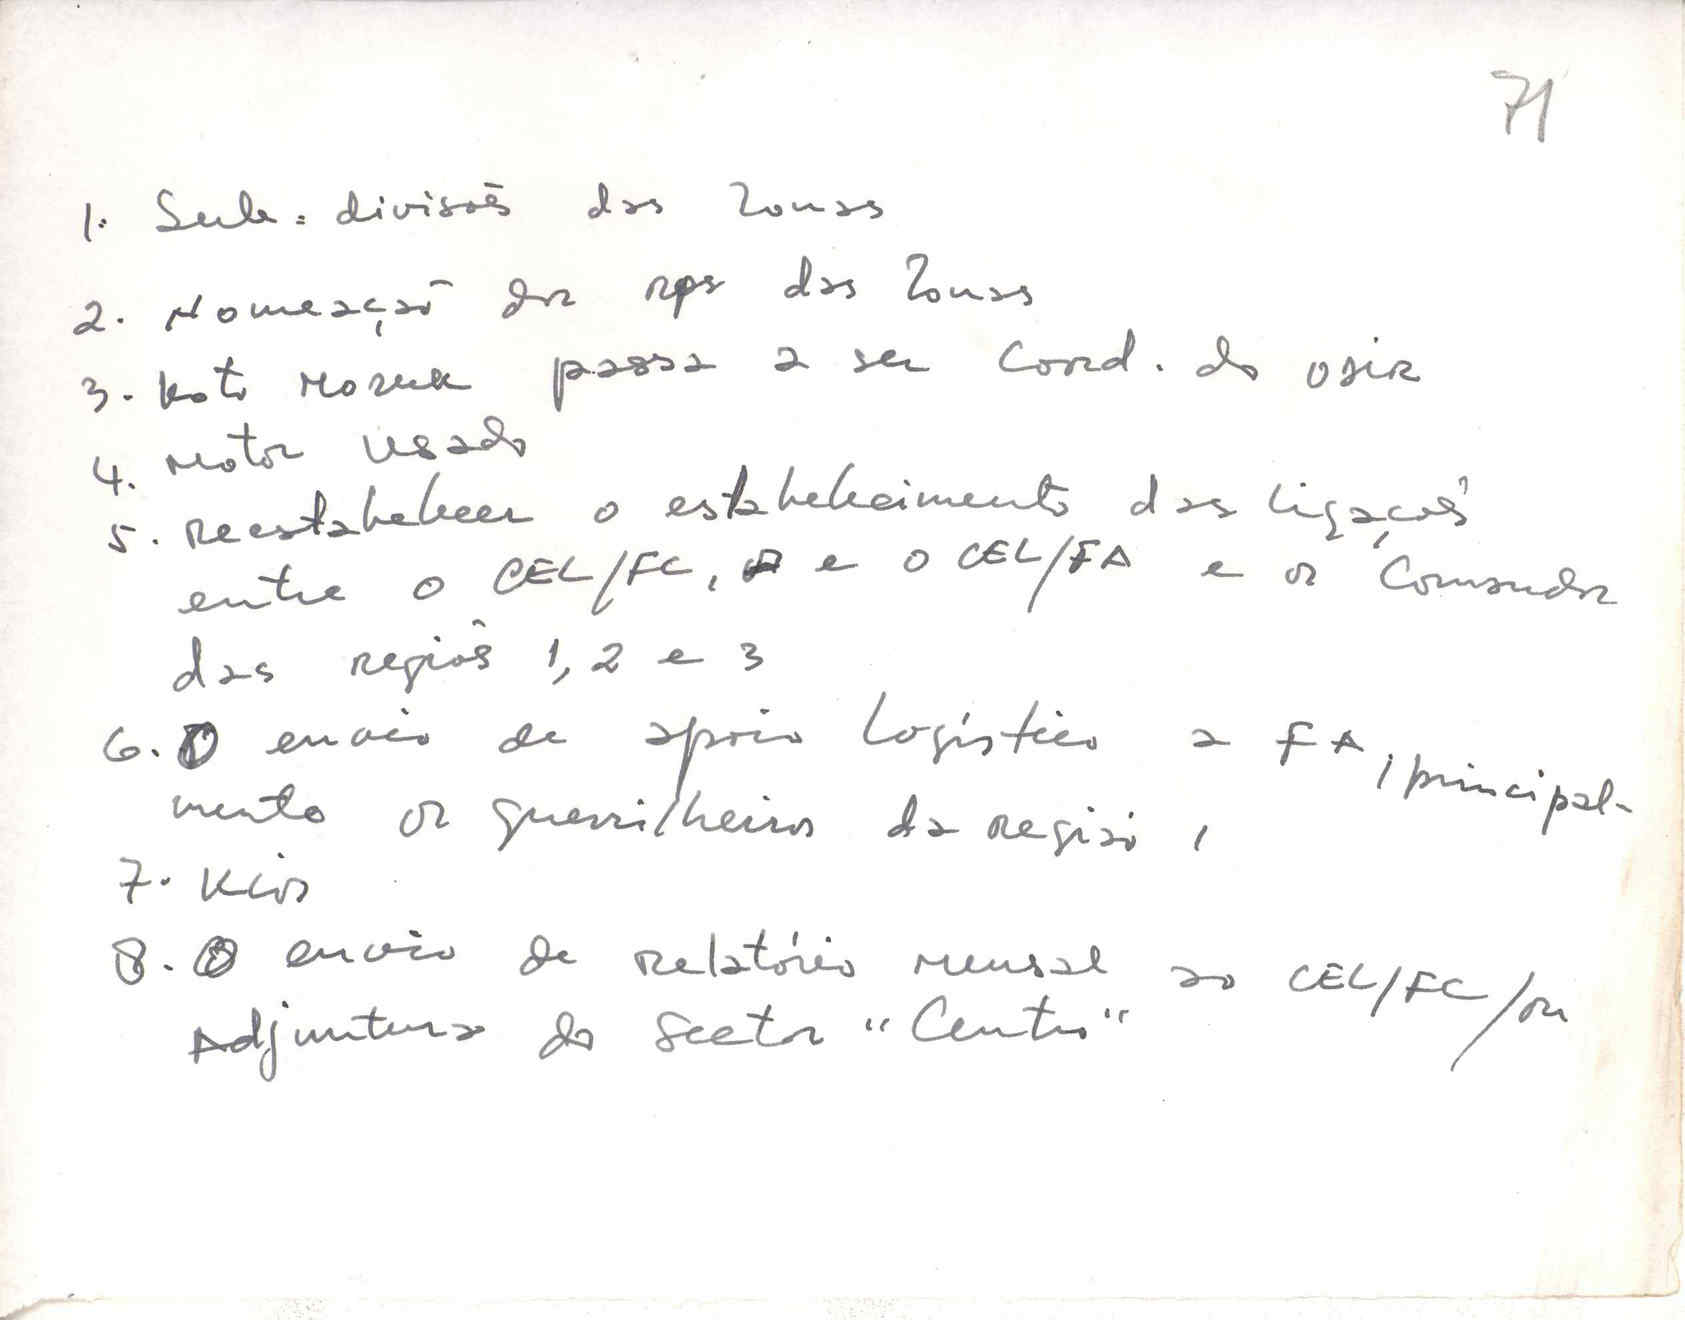 71
1. Sub-divisões das Zonas
2. Nomeação dos rps das Zonas
3. Koto Moruk passa a ser Coord. do OSIR
4. Motor usado
5. Reestabelecer o estabelecimento das ligações
entre o CEL/FC, e o CEL/FA e os Comandos
das regiões 1, 2 e 3
6. O envio de apoio logístico a FA, principal-
mento os guerrilheiros da região 1
7. Kios
8. O envio de relatório mensal ao CEL/FC/ou
Adjuntura do Sector "Centro"